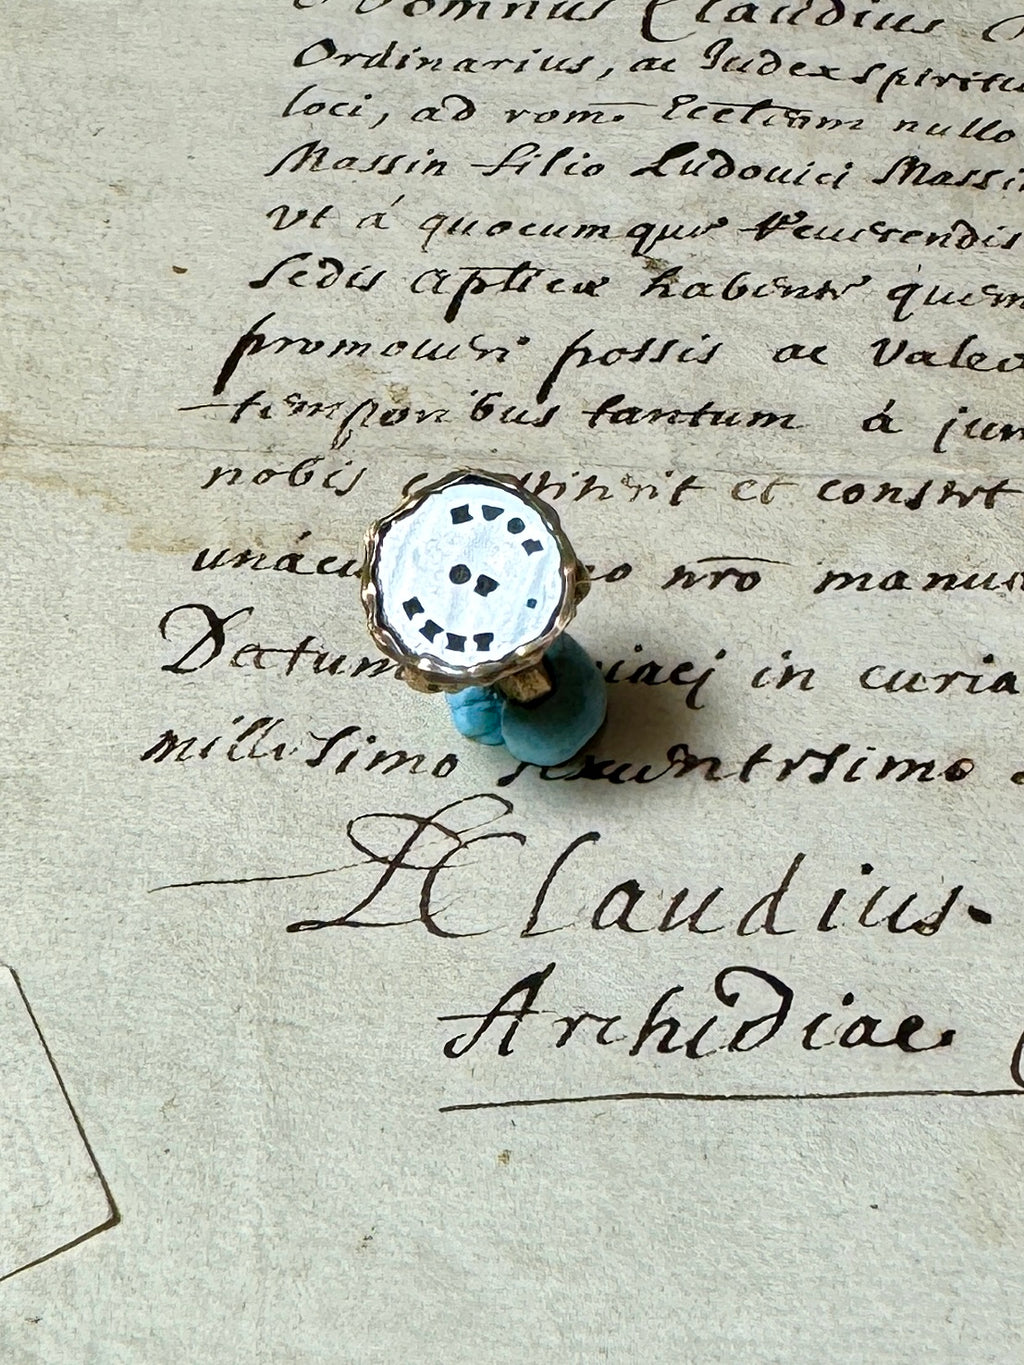 Domnus Claudius
Ordinarius, ac Judex Spiritu
loci, ad rom. Eccliam nullo
Massin filio Ludouici Massi
vt á quocumque Reuerendis
Sedis Aplicæ habente quem
promoueri possis ac Valea
temporibus tantum á jur
nobis et constet
unácu nro manu
Datum in curia
millesimo sexcentesimo
Claudius.
Archidiac.